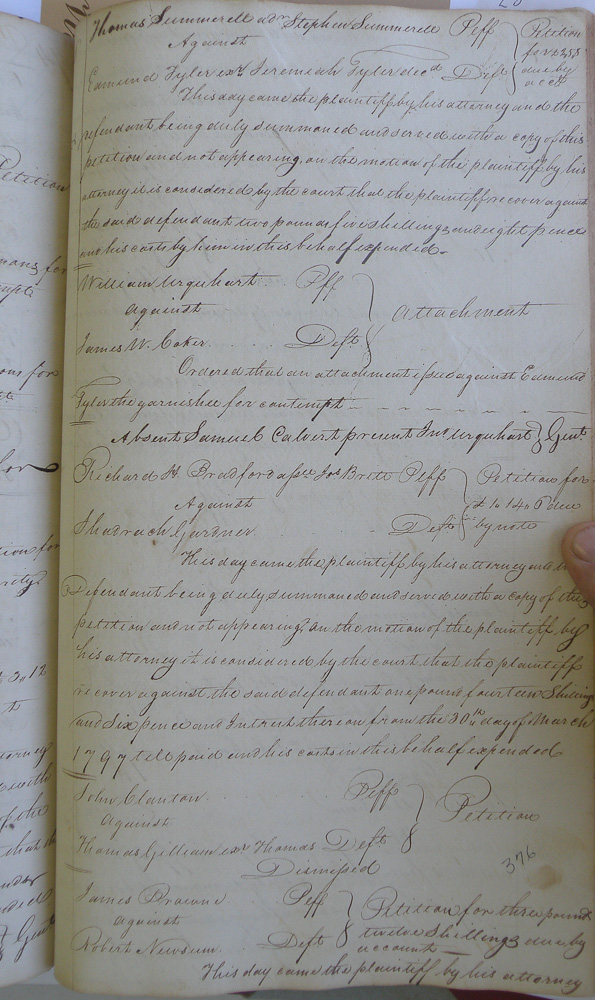 Thomas Summerell adr Stephen Summerell Peff } Petition
Against } for £2 5 8
Edmund Tyler exr Jeremiah Tyler decd Deft } due by acct
This day came the plaintiff by his attorney and the
defendant being duly summoned and served with a copy of this
petition and not appearing, on the motion of the plaintiff by his
attorney it is considered by the court that the plaintiff recover against
the said defendant two pounds five shillings and eight pence
and his costs by him in this behalf expended.
William Urquhart Peff }
against } Attachment
James W. Coker Deft }
Ordered that an attachment issue against Edmund
Tyler the garnishee for contempt
Absent Samuel Calvert present Jno Urquhart } Gent.
Richard H. Bradford assee Jos Britt Peff } Petition for
Against } £1 14 6 due
Shadrach Gardner Deft } by note
This day came the plaintiff by his attorney and
Defendant being duly summoned and served with a copy of the
petition and not appearing, on the motion of the plaintiff, by
his attorney it is considered by the court that the plaintiff
recover against the said defendant one pound fourteen Shillings
and Six pence and Intrest thereon from the 30th day of March
1797 till paid and his costs in this behalf expended
John Clanton Peff }
Against } Petition
Thomas Gilliam exr Thomas Deft }
Dismissed
376
James Browne Peff } Petition for three pound
against } twelve Shillings due by
Robert Newsum Deft } account
This day came the plaintiff by his attorney